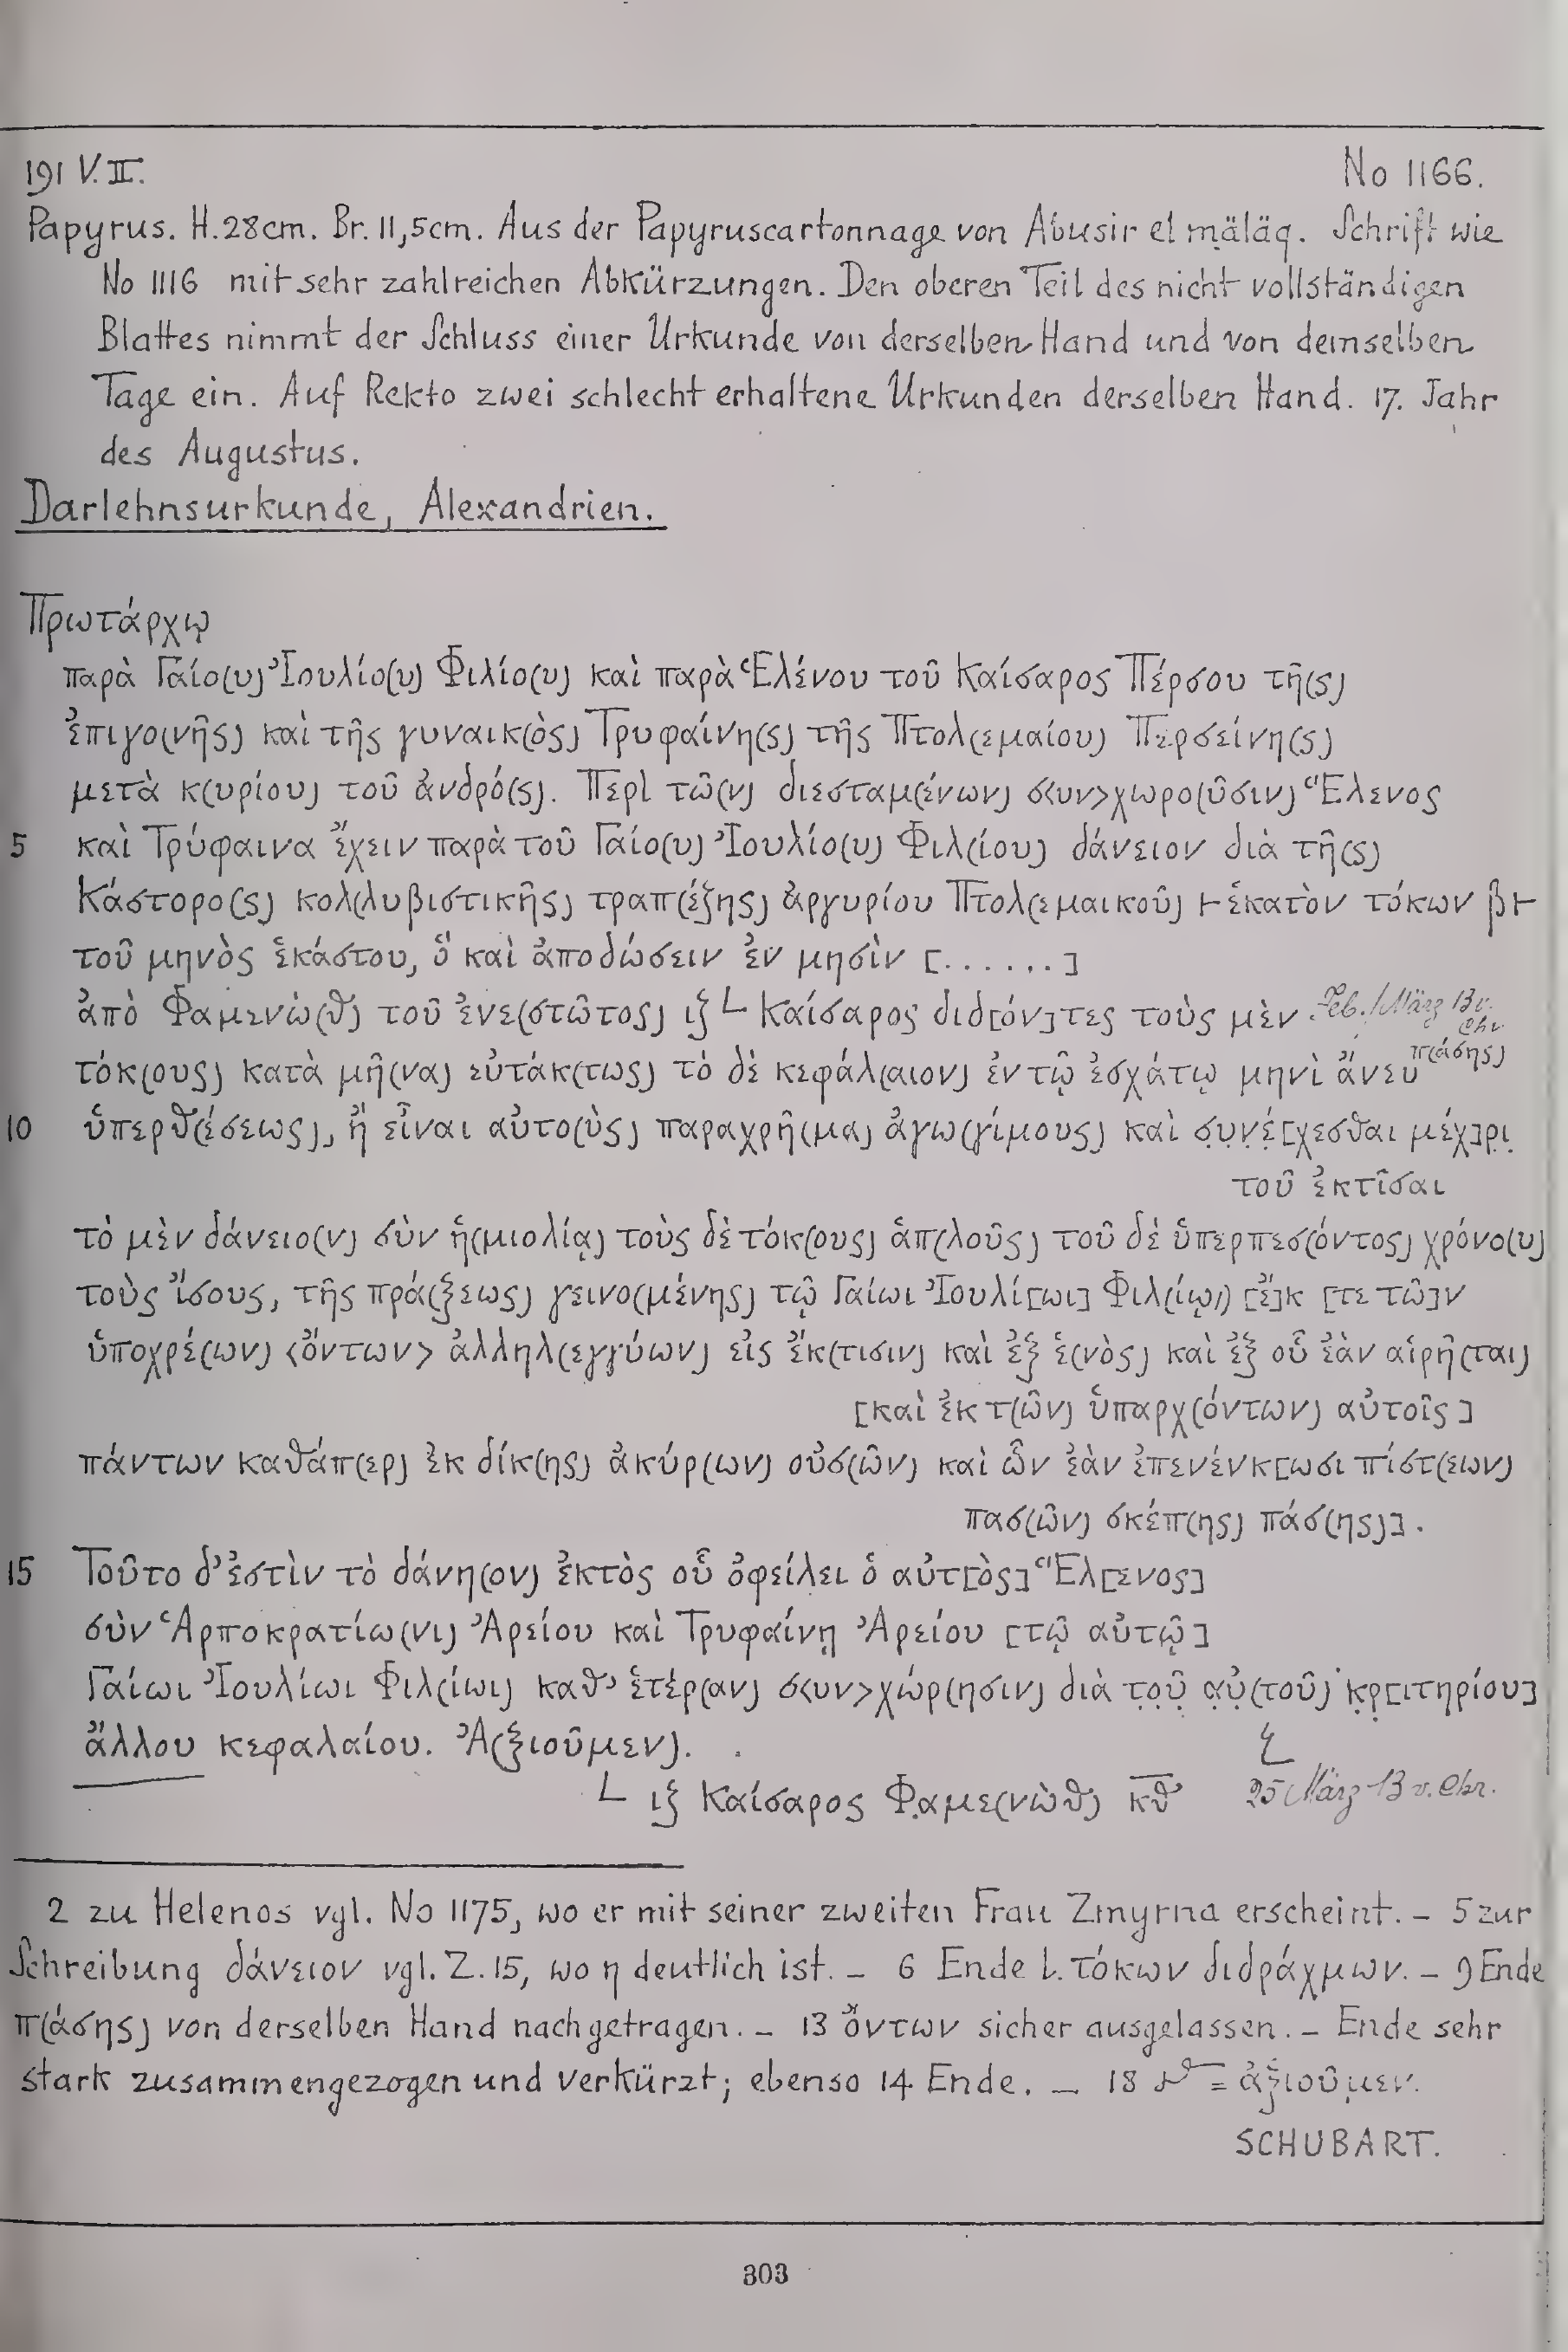 191 V. II. No 1166.
Papyrus. H. 28cm. Br. 11,5cm. Aus der Papyruscartonnage von Abusir el mäläq. Schrift wie
No 1116 mit sehr zahlreichen Abkürzungen. Den oberen Teil des nicht vollständigen
Blattes nimmt der Schluss einer Urkunde von derselben Hand und von demselben
Tage ein. Auf Rekto zwei schlecht erhaltene Urkunden derselben Hand. 17. Jahr
des Augustus.
Darlehnsurkunde, Alexandrien.
Πρωτάρχῳ
παρὰ Γαίο(υ) Ἰουλίο(υ) Φιλίο(υ) καὶ παρὰ Ἑλένου τοῦ Καίσαρος Πέρσου τῆ(ς)
ἐπιγο(νῆς) καὶ τῆς γυναικ(ὸς) Τρυφαίνη(ς) τῆς Πτολ(εμαίου) Περσείνη(ς)
μετὰ κ(υρίου) τοῦ ἀνδρό(ς). Περὶ τῶ(ν) διεσταμ(ένων) σ<υν>χωρο(ῦσιν) Ἕλενος
5 καὶ Τρύφαινα ἔχειν παρὰ τοῦ Γαίο(υ) Ἰουλίο(υ) Φιλ(ίου) δάνειον διὰ τῆ(ς)
Κάστορο(ς) κολ(λυβιστικῆς) τραπ(έζης) ἀργυρίου Πτολ(εμαικοῦ) ⊢ ἑκατὸν τόκων β⊢
τοῦ μηνὸς ἑκάστου, ὃ καὶ ἀποδώσειν ἐν μησὶν [......]
ἀπὸ Φαμενὼ(θ) τοῦ ἐνε(στῶτος) ιζ L Καίσαρος διδ[όν]τες τοὺς μὲν Feb./März 13 v. Chr.
τόκ(ους) κατὰ μῆ(να) εὐτάκ(τως) τὸ δὲ κεφάλ(αιον) ἐν τῷ ἐσχάτῳ μηνὶ ἄνευ π(άσης)
10 ὑπερθ(έσεως), ἢ εἶναι αὐτο(ὺς) παραχρῆ(μα) ἀγω(γίμους) καὶ σ̣υ̣ν̣έ̣[χεσθαι μέχ]ρ̣ι̣
τοῦ ἐκτῖσαι
τὸ μὲν δάνειο(ν) σὺν ἡ(μιολίᾳ) τοὺς δὲ τόκ(ους) ἁπ(λοῦς) τοῦ δὲ ὑπερπεσ(όντος) χρόνο(υ)
τοὺς ἴσους, τῆς πρά(ξεως) γεινο(μένης) τῷ Γαίωι Ἰουλί[ωι] Φιλ(ίῳι) [ἔ]κ [τε τῶ]ν
ὑποχρέ(ων) <ὄντων> ἀλληλ(εγγύων) εἰς ἔκ(τισιν) καὶ ἐξ ἑ(νὸς) καὶ ἐξ οὗ ἐὰν αἱρῆ(ται)
[καὶ ἐκ τ(ῶν) ὑπαρχ(όντων) αὐτοῖς]
πάντων καθάπ(ερ) ἐκ δίκ(ης) ἀκύρ(ων) οὐσ(ῶν) καὶ ὧν ἐὰν ἐπενένκ[ωσι πίστ(εων)
πασ(ῶν) σκέπ(ης) πάσ(ης)].
15 Τοῦτο δ’ ἐστὶν τὸ δάνη(ον) ἐκτὸς οὗ ὀφείλει ὁ αὐτ[ὸς] Ἕλ[ενος]
σὺν Ἁρποκρατίω(νι) Ἀρείου καὶ Τρυφαίνῃ Ἀρείου [τῷ αὐτῷ]
Γαίωι Ἰουλίωι Φιλ(ίωι) καθ’ ἑτέρ(αν) σ<υν>χώρ(ησιν) διὰ τ̣ο̣ῦ̣ α̣ὐ̣(τοῦ) κ̣ρ̣[ιτηρίου]
ἄλλου κεφαλαίου. Ἀ(ξιοῦμεν).
L ιζ Καίσαρος Φ̣αμε(νὼθ) κ̅θ̅ 25 März 13 v. Chr.
2 zu Helenos vgl. No 1175, wo er mit seiner zweiten Frau Zmyrna erscheint. – 5 zur
Schreibung δάνειον vgl. Z. 15, wo η deutlich ist. – 6 Ende l. τόκων διδράχμων. – 9 Ende
π(άσης) von derselben Hand nachgetragen. – 13 ὄντων sicher ausgelassen. – Ende sehr
stark zusammengezogen und verkürzt; ebenso 14 Ende. – 18 = ἀξιοῦμεν.
SCHUBART.
303